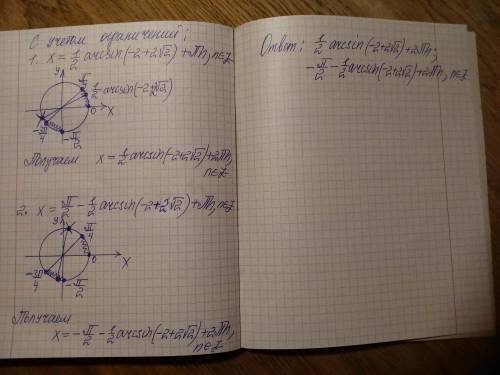 С учетом ограничений:
1. x = 1/2 arcsin(-2+2√2) + πn, n∈Z
y
π/4
1/2 arcsin(-2+2√2)
0
x
-3π/4
-π/2
Получаем x = 1/2 arcsin(-2+2√2)+2πn,
n∈Z
2. x = π/2 - 1/2 arcsin(-2+2√2) + πn, n∈Z
y
π/4
0
x
-3π/4
-π/2
Получаем
x = -π/2 - 1/2 arcsin(-2+2√2)+2πn,
n∈Z
Ответ: 1/2 arcsin(-2+2√2)+2πn;
-π/2 - 1/2 arcsin(-2+2√2)+2πn, n∈Z